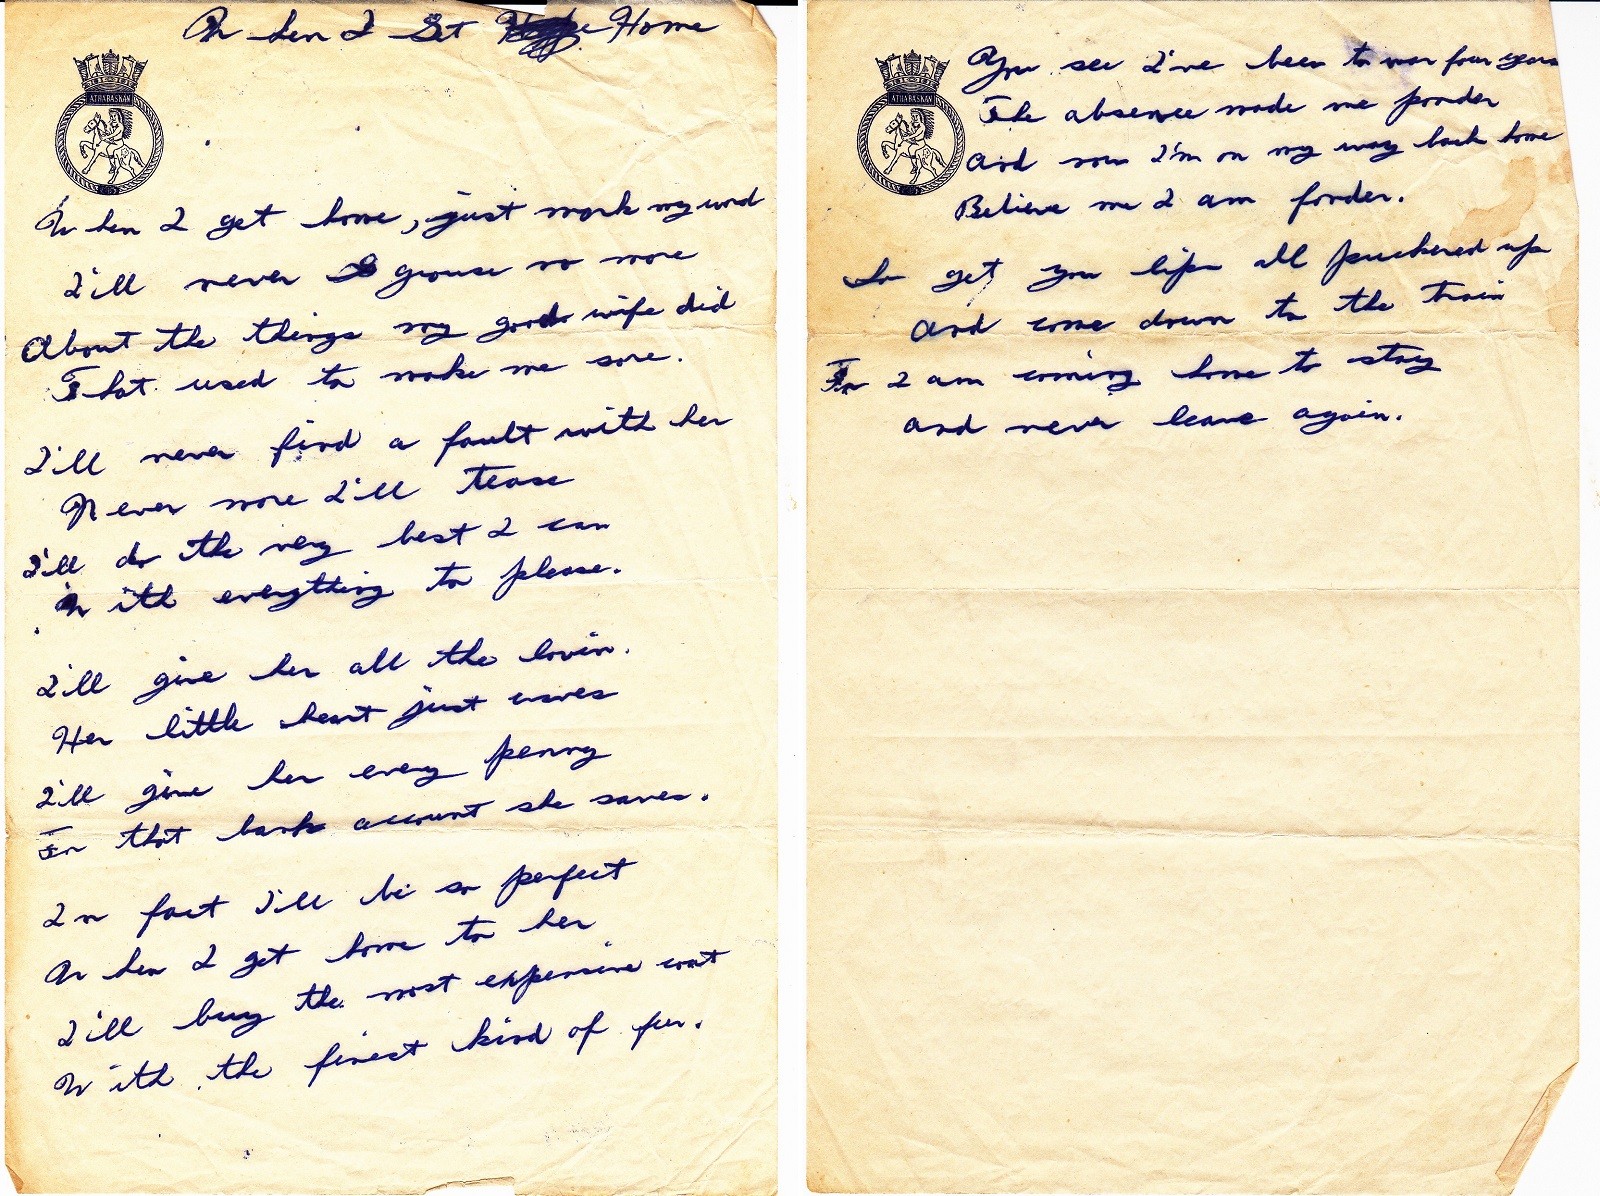 When I Get Home
ATHABASKAN
When I get home, just mark my word
I'll never grouse no more
About the things my good wife did
That used to make me sore.
I'll never find a fault with her
Never more I'll tease
I'll do the very best I can
With everything to please.
I'll give her all the lovin.
Her little heart just craves
I'll give her every penny
In that bank account she saves.
In fact I'll be so perfect
When I get home to her
I'll buy the most expensive coat
With the finest kind of fur.
ATHABASKAN
You see I've been to war four years
The absence made me ponder
And now I'm on my way back home
Believe me I am fonder.
So get you lips all puckered up
And come down to the train
For I am coming home to stay
and never leave again.